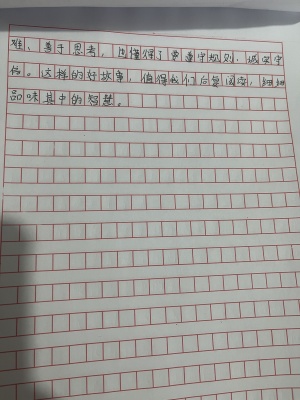 难、善于思考,也懂得了要遵守规则,诚实守
信。这样的好故事,值得我们反复阅读,细细
品味其中的智慧。